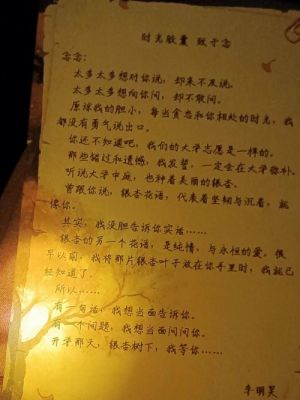 时光胶囊 致于念
念念：
太多太多想对你说，却来不及说。
太多太多想问你问，却不敢问。
原谅我的胆小，每当贪恋和你相处的时光，我
都没有勇气说出口。
你还不知道吧，我们的大学志愿是一样的。
那些错过和遗憾，我发誓，一定会在大学弥补。
听说大学中庭，也种着美丽的银杏。
曾跟你说，银杏花语，代表着坚韧与沉着，就
像你。
其实，我没胆告诉你实话……
银杏的另一个花语，是纯情，与永恒的爱。很
早以前，我将那片银杏叶子放在你手里时，我就已
经知道了。
所以……
有一句话，我想当面告诉你。
有一个问题，我想当面问问你。
开学那天，银杏树下，我等你……
李明昊